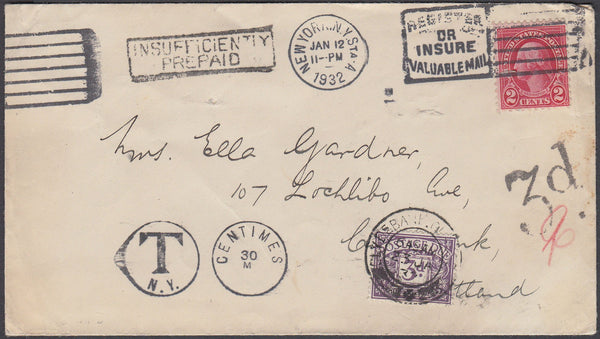 INSUFFICIENTLY
PREPAID
NEW YORK, N.Y. STA. A
JAN 12
11-PM
1932
REGISTER
OR
INSURE
VALUABLE MAIL
2 CENTS 2
Mrs. Ella Gardner,
107 Lochlibo Ave,
3d.
T
N.Y.
CENTIMES
30
M